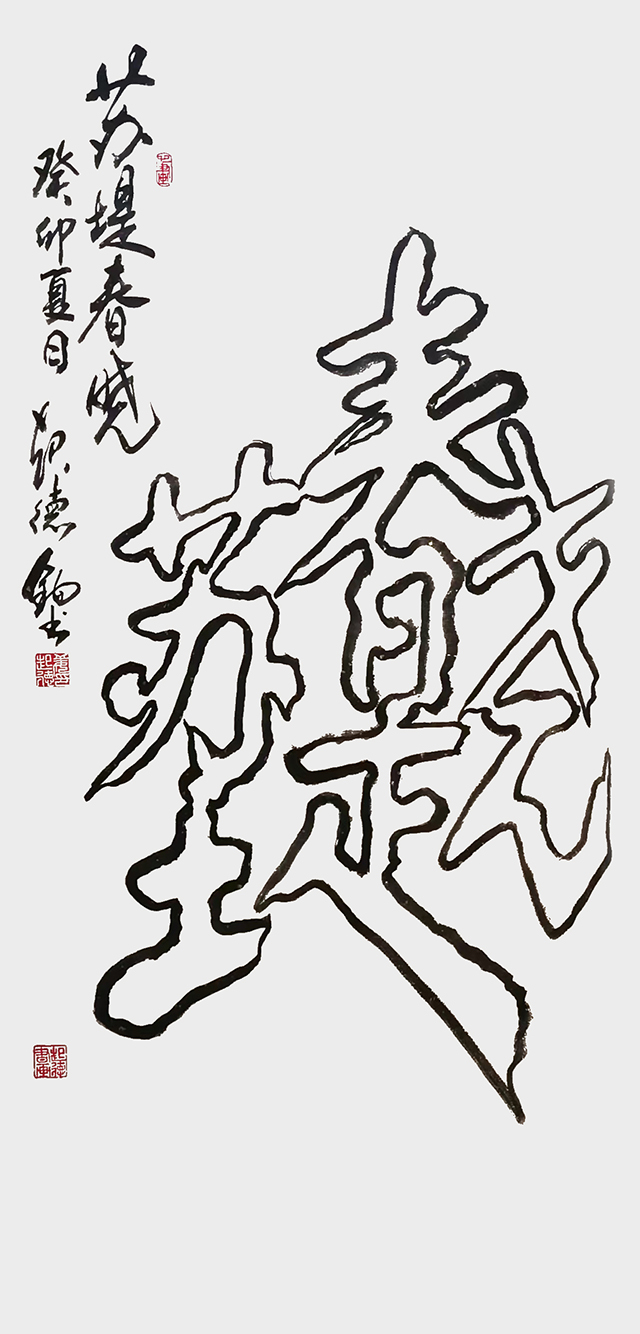 苏堤春晓
苏堤春晓
癸卯夏日 起德